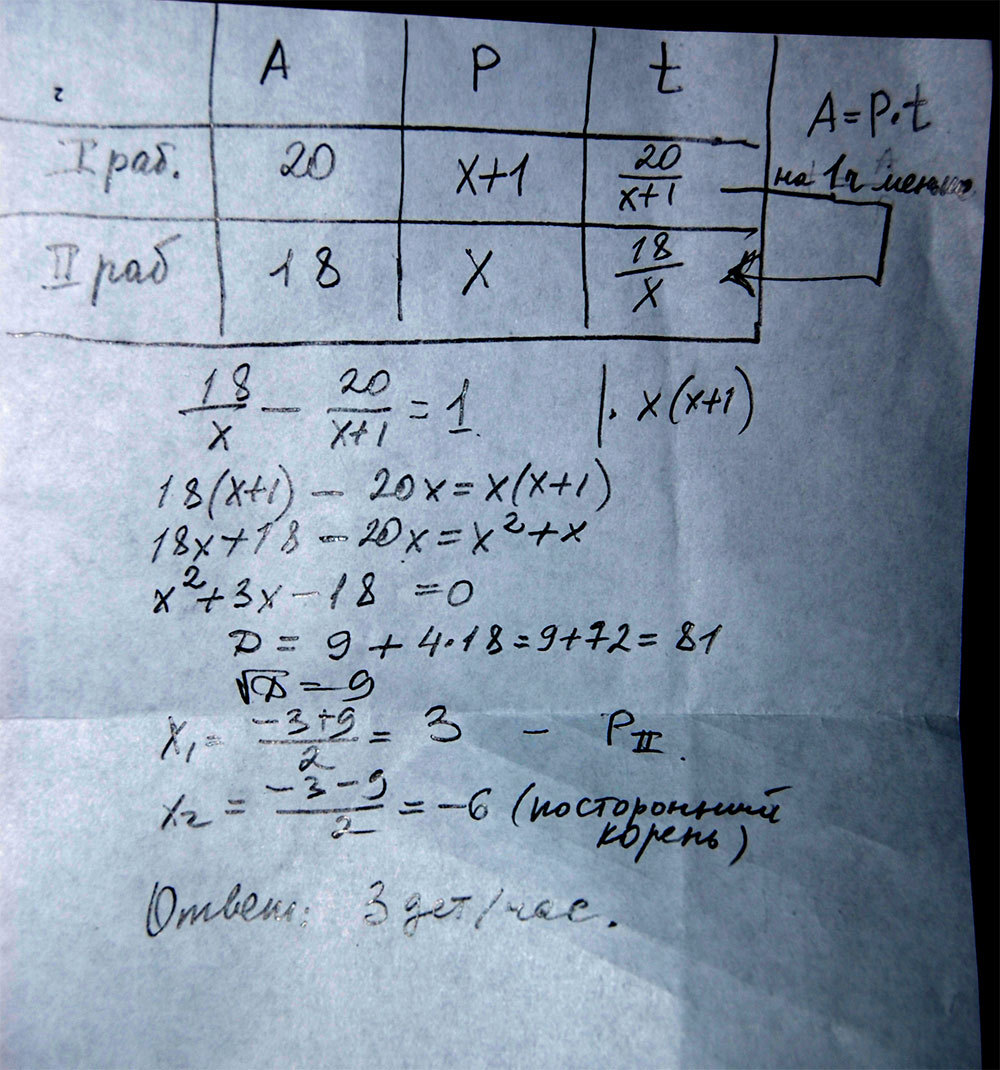 A P t
A = P·t
I раб. 20 x+1 20/(x+1) на 1ч меньше
II раб 18 x 18/x
18/x − 20/(x+1) = 1 |· x(x+1)
18(x+1) − 20x = x(x+1)
18x+18 − 20x = x²+x
x²+3x−18 =0
D = 9 + 4·18=9+72=81
√D = 9
x₁= (−3+9)/2 = 3 − P_II.
x₂ = (−3−9)/2 = −6 (посторонний
корень)
Ответ: 3 дет/час.